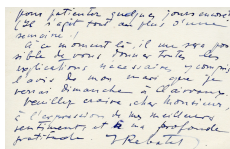 pour patienter quelques jours encore
(Il s'agit tout au plus d'une
semaine.)
À ce moment-là, il me sera pos
sible de vous donner toutes les
explications nécessaires, y compris
l'avis de mon que je
verrai dimanche à Clairvaux.
Veuillez croire, cher Monsieur,
à l'expression de mes meilleurs
sentiments et à ma profonde
gratitude. Rebatet